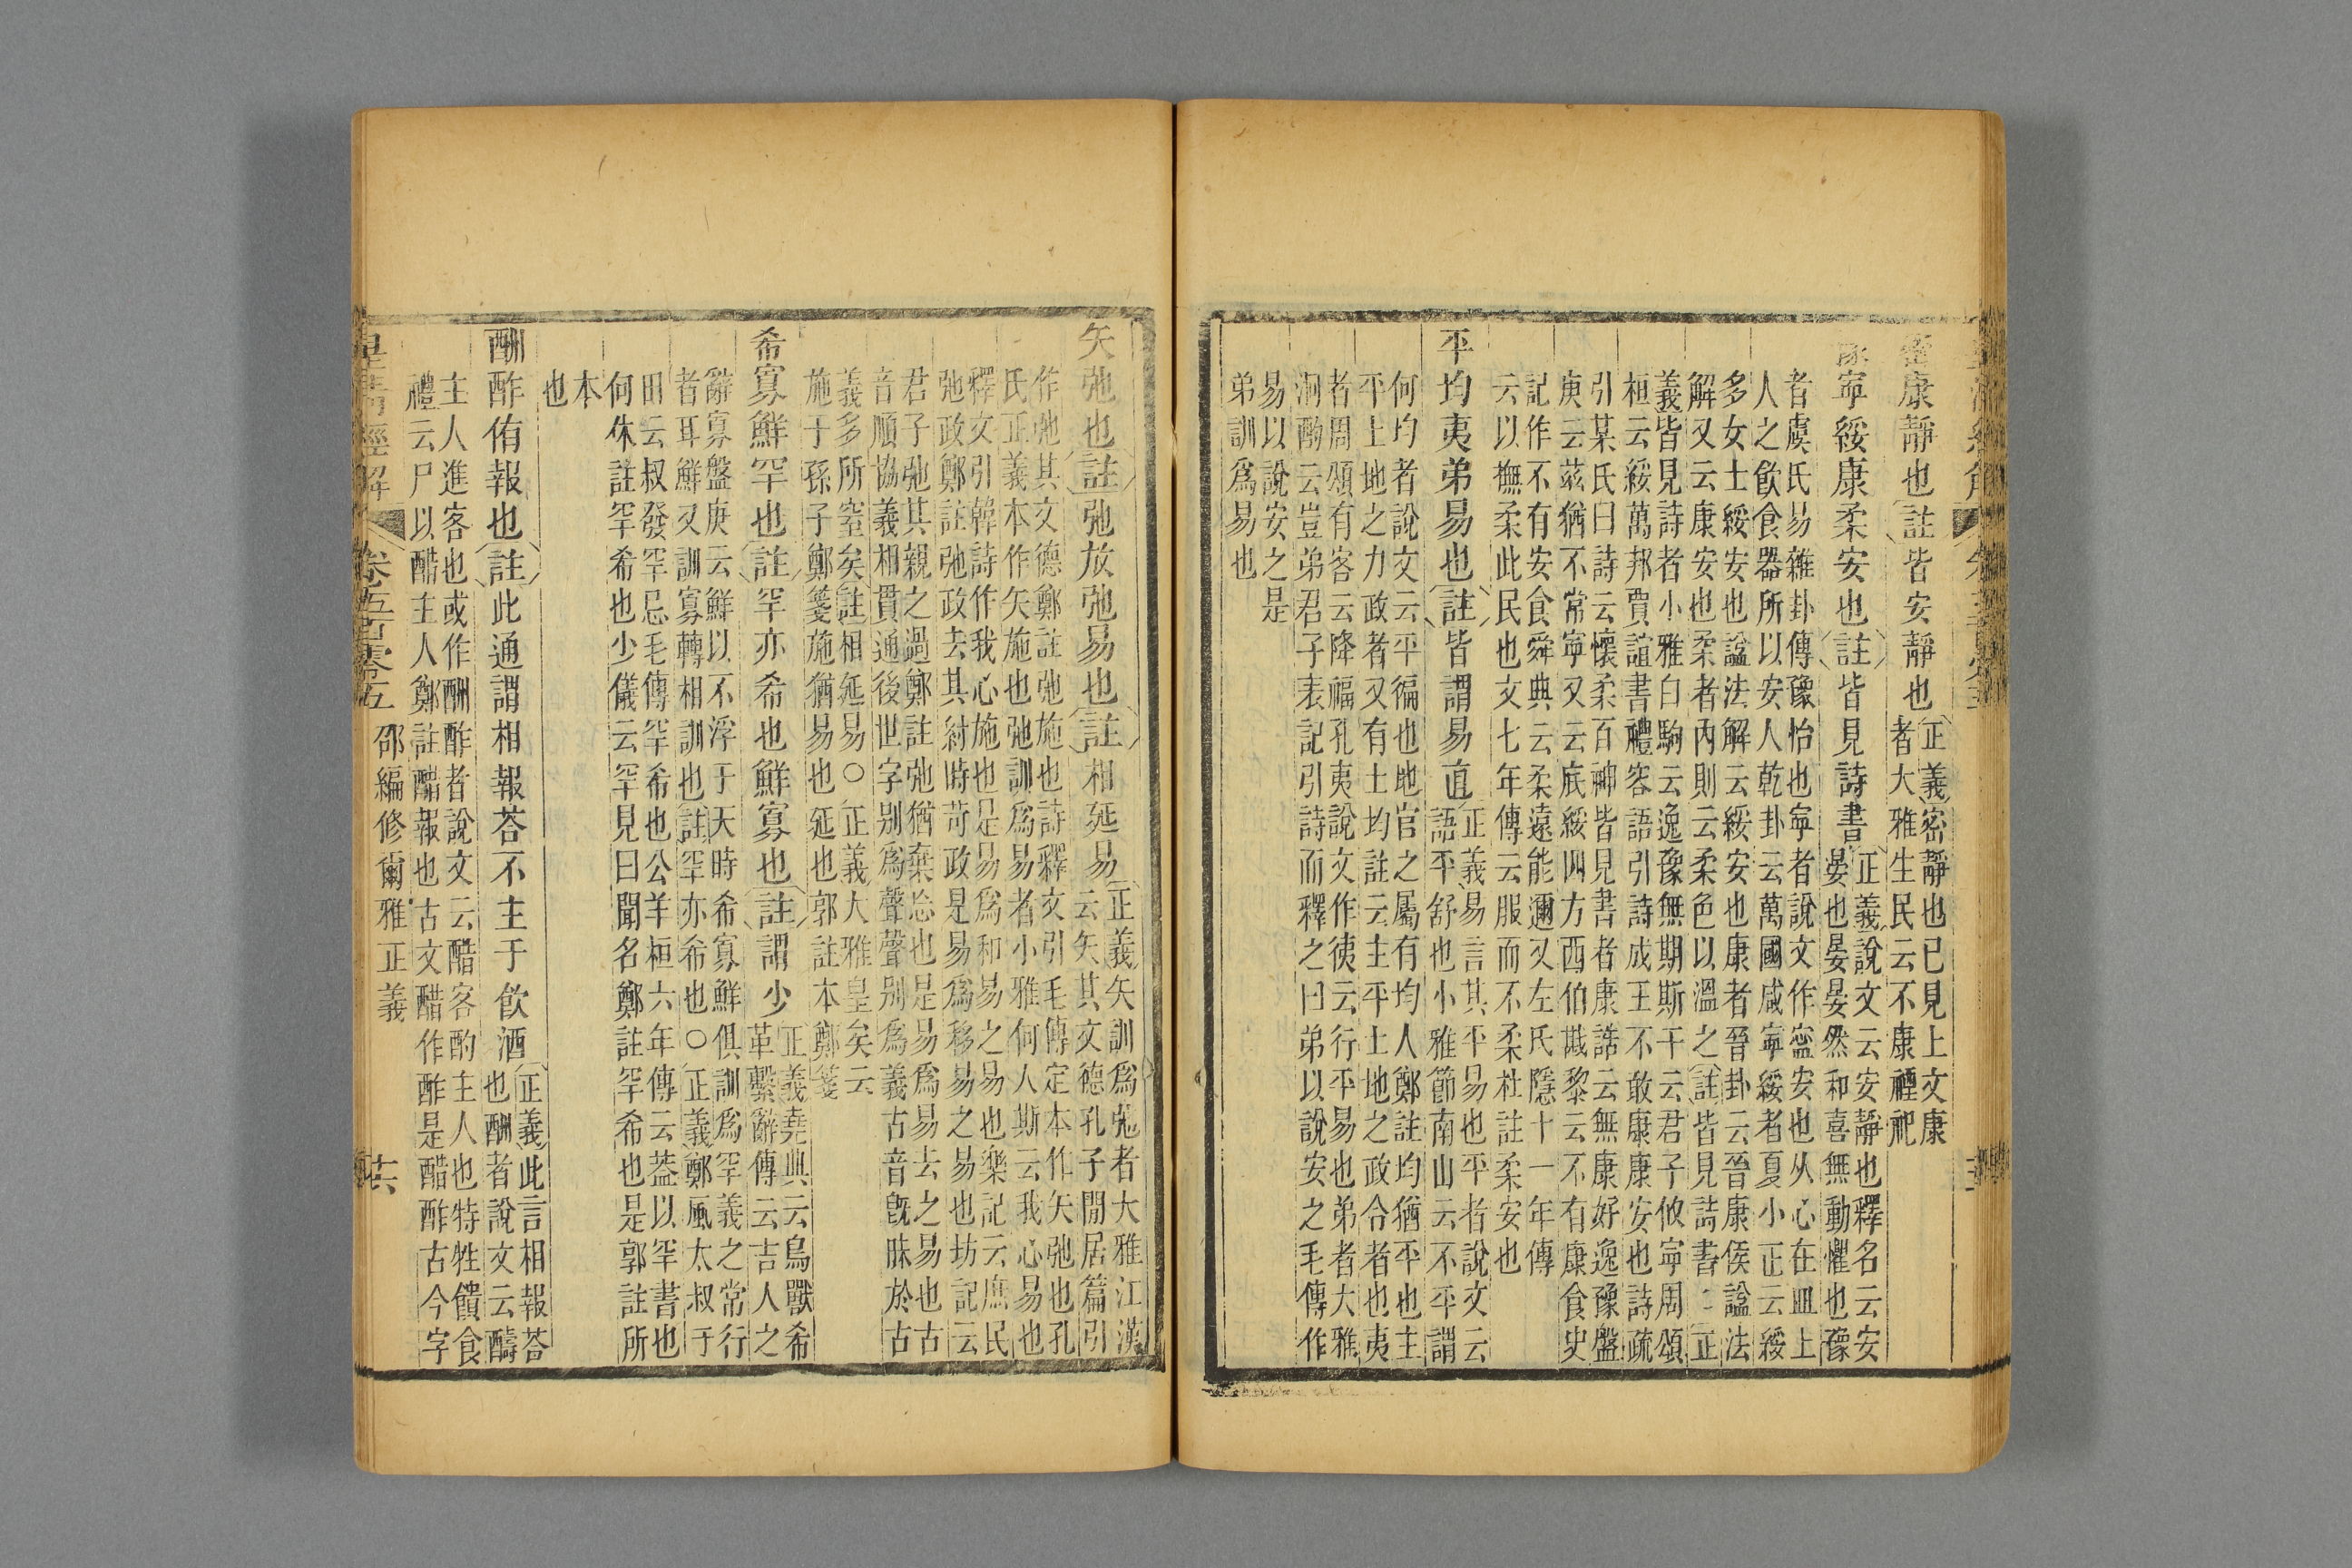 密康靜也註皆安靜也正義密靜也已見上文康
者大雅生民云不康禋祀
豫寧綏康柔安也註皆見詩書正義說文云安靜也釋名云安
晏也晏晏然和喜無動懼也豫
者虞氏易雜卦傳豫怡也寧者說文作寍安也从心在皿上
人之飲食器所以安人乾卦云萬國咸寧綏者夏小正云綏
多女士綏安也諡法解云綏安也康者晉卦云晉康侯諡法
解又云康安也柔者內則云柔色以溫之註皆見詩書正
義皆見詩者小雅白駒云逸豫無期斯干云君子攸寧周頌
桓云綏萬邦賈誼書禮容語引詩成王不敢康康安也詩疏
引某氏曰詩云懷柔百神皆見書者康誥云無康好逸豫盤
庚云茲猶不常寧又云底綏四方西伯戡黎云不有康食史
記作不有安食舜典云柔遠能邇又左氏隱十一年傳
云以撫柔此民也文七年傳云服而不柔杜註柔安也
平均夷弟易也註皆謂易直正義易言其平易也平者說文云
語平舒也小雅節南山云不平謂
何均者說文云平徧也地官之屬有均人鄭註均猶平也主
平土地之力政者又有土均註云主平土地之政令者也夷
者周頌有客云降福孔夷說文作徠云行平易也弟者大雅
泂酌云豈弟君子表記引詩而釋之曰弟以說安之毛傳作
易以說安之是
弟訓爲易也
矢弛也註弛放弛易也註相延易正義矢訓爲弛者大雅江漢
云矢其文德孔子閒居篇引
作弛其文德鄭註弛施也詩釋文引毛傳定本作矢弛也孔
氏正義本作矢施也弛訓爲易者小雅何人斯云我心易也
釋文引韓詩作我心施也是易爲和易之易也樂記云庶民
弛政鄭註弛政去其紂時苛政是易爲移易之易也坊記云
君子弛其親之過鄭註弛猶棄忘也是易爲易去之易也古
音順協義相貫通後世字別爲聲聲別爲義古音旣昧於古
義多所窒矣註相延易〇正義大雅皇矣云
施于孫子鄭箋施猶易也延也郭註本鄭箋
希寡鮮罕也註罕亦希也鮮寡也註謂少正義堯典云鳥獸希
革繫辭傳云吉人之
辭寡盤庚云鮮以不浮于天時希寡鮮俱訓爲罕義之常行
者耳鮮又訓寡轉相訓也註罕亦希也〇正義鄭風太叔于
田云叔發罕忌毛傳罕希也公羊桓六年傳云葢以罕書也
何休註罕希也少儀云罕見曰聞名鄭註罕希也是郭註所
本
也
酬酢侑報也註此通謂相報荅不主于飲酒正義此言相報荅
也酬者說文云醻
主人進客也或作酬酢者說文云醋客酌主人也特牲饋食
禮云尸以醋主人鄭註醋報也古文醋作酢是醋酢古今字
皇清經解 卷五百零五 邵編修爾雅正義 十六